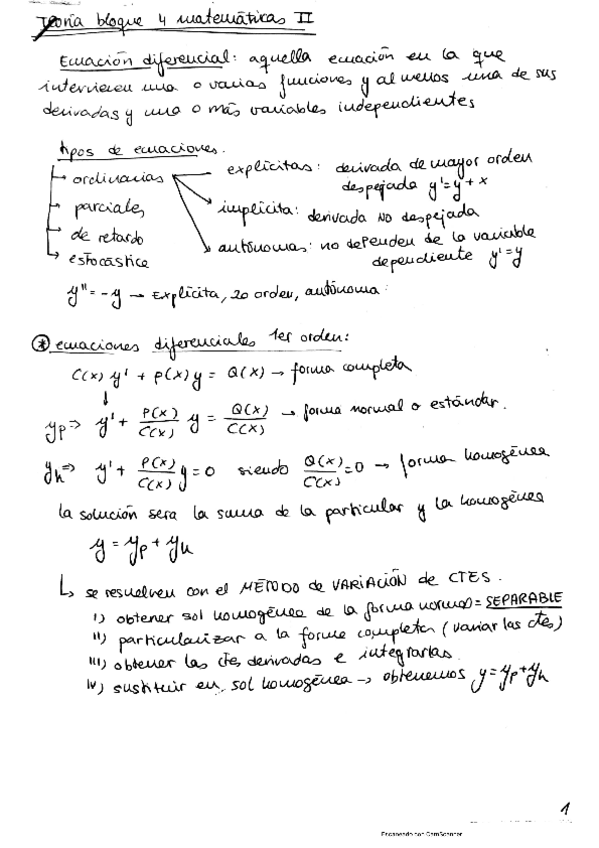 Teoría bloque 4 matemáticas II
Ecuación diferencial: aquella ecuación en la que
intervienen una o varias funciones y al menos una de sus
derivadas y una o más variables independientes
tipos de ecuaciones.
→ ordinarias
→ explícitas: derivada de mayor orden
despejada y' = y + x
→ parciales
→ implícita: derivada NO despejada
→ de retardo
→ autónomas: no dependen de la variable
dependiente y' = y
→ estocástica
y'' = -y → Explícita, 2o orden, autónoma.
* ecuaciones diferenciales 1er orden:
C(x) y' + p(x) y = Q(x) → forma completa
↓
yp ⇒ y' + P(x)/C(x) y = Q(x)/C(x) → forma normal o estándar.
yh ⇒ y' + P(x)/C(x) y = 0 siendo Q(x)/C(x) = 0 → forma homogénea
la solución sera la suma de la particular y la homogénea
y = yp + yh
↳ se resuelven con el MÉTODO de VARIACIÓN de CTES.
I) obtener sol homogénea de la forma normal = SEPARABLE
II) particularizar a la forma completa (variar las ctes)
III) obtener las ctes derivadas e integrarlas.
IV) sustituir en sol homogénea → obtenemos y = yp + yh
1
Escaneado con CamScanner